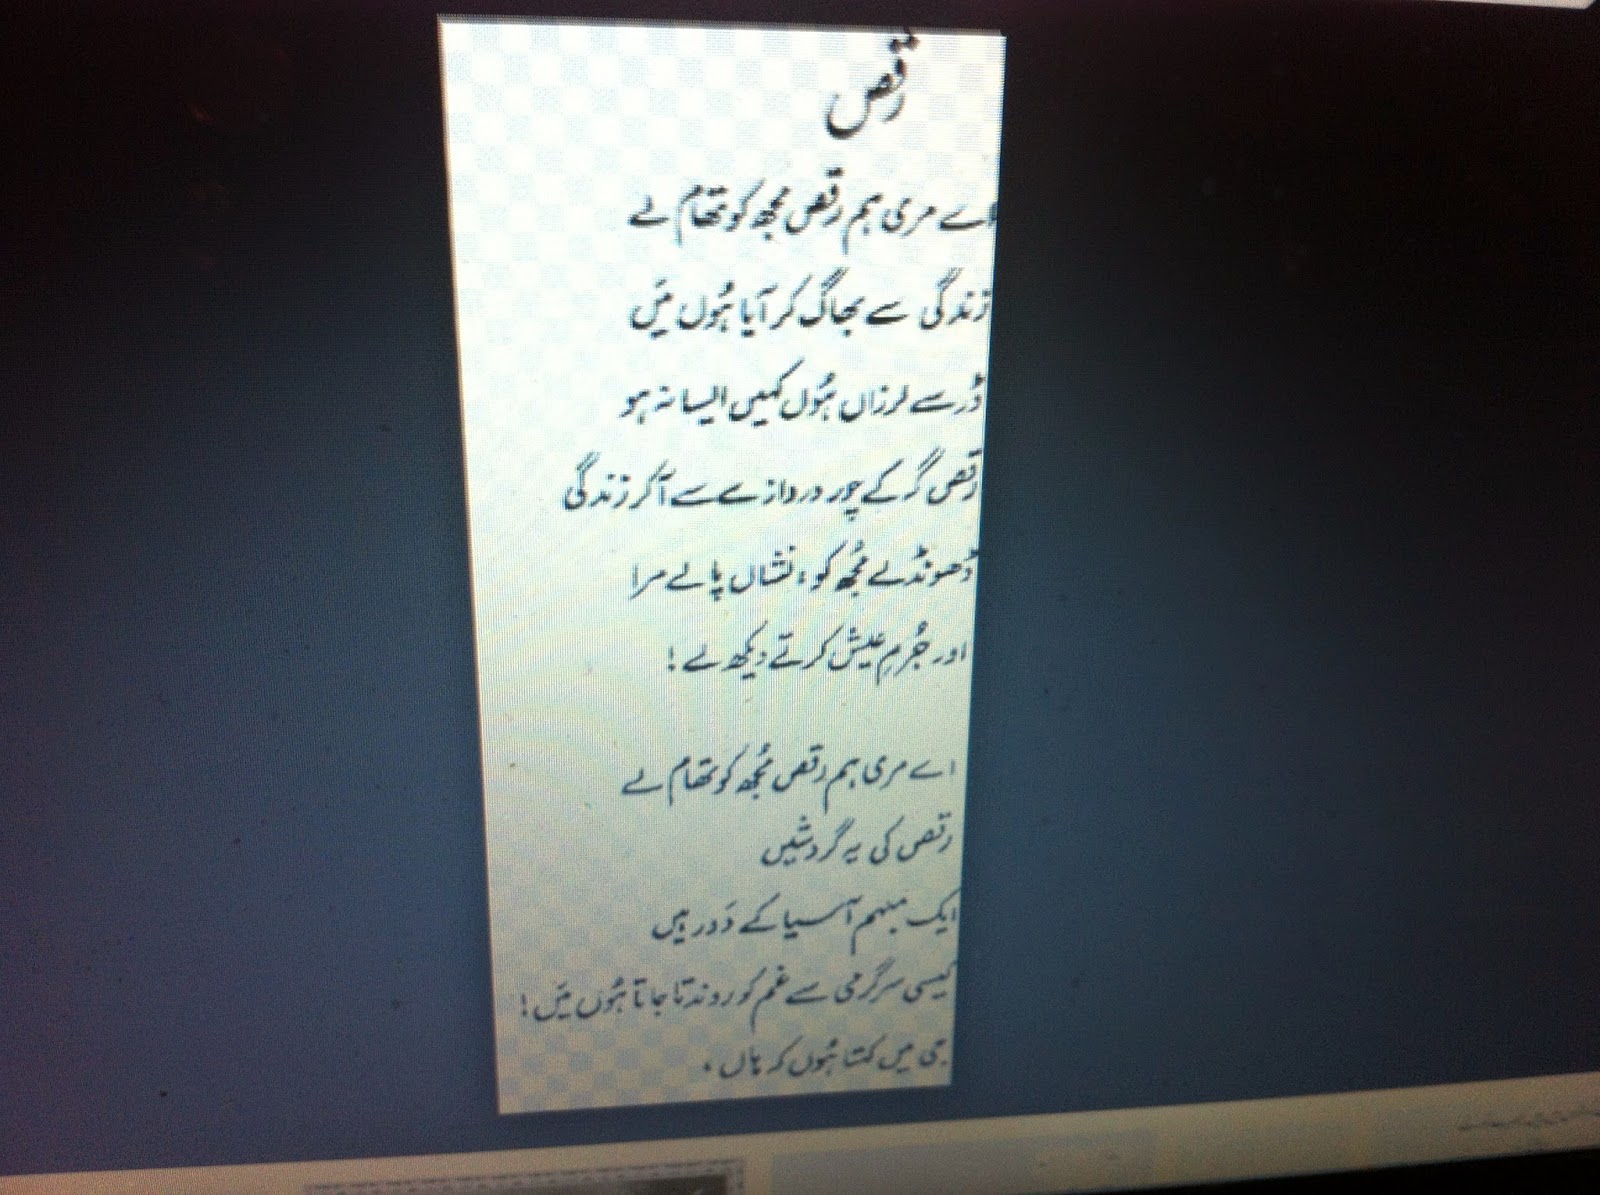 رقص
اے مری ہم رقص مجھ کو تھام لے
زندگی سے بھاگ کر آیا ہُوں مَیں
ڈر سے لرزاں ہُوں کہیں ایسا نہ ہو
رقص گہ کے چور دروازے سے آ کر زندگی
ڈھونڈ لے مُجھ کو، نشاں پا لے مرا
اور جُرمِ عیش کرتے دیکھ لے!
اے مری ہم رقص مُجھ کو تھام لے
رقص کی یہ گردشیں
ایک مبہم آسیا کے دَور ہیں
کیسی سرگرمی سے غم کو روندتا جاتا ہُوں مَیں!
جی میں کہتا ہُوں کہ ہاں،